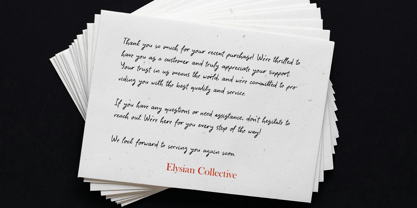 Thank you so much for your recent purchase! We're thrilled to
have you as a customer and truly appreciate your support.
Your trust in us means the world, and we're committed to pro-
viding you with the best quality and service.
If you have any questions or need assistance, don't hesitate to
reach out. We're here for you every step of the way!
We look forward to serving you again soon.
Elysian Collective